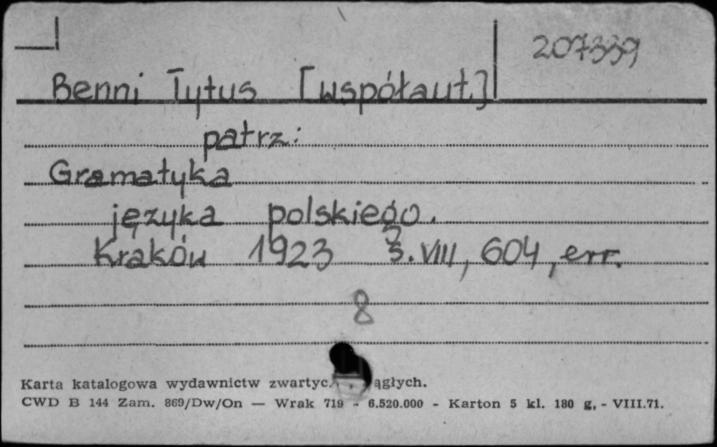 207339
Benni Tytus [współaut.]
patrz:
Gramatyka
języka polskiego.
Kraków 1923 s. VIII, 604, err.
8
Karta katalogowa wydawnictw zwartyc ągłych.
CWD B 144 Zam. 869/Dw/On — Wrak 719 - 6.520.000 - Karton 5 kl. 180 g. - VIII.71.